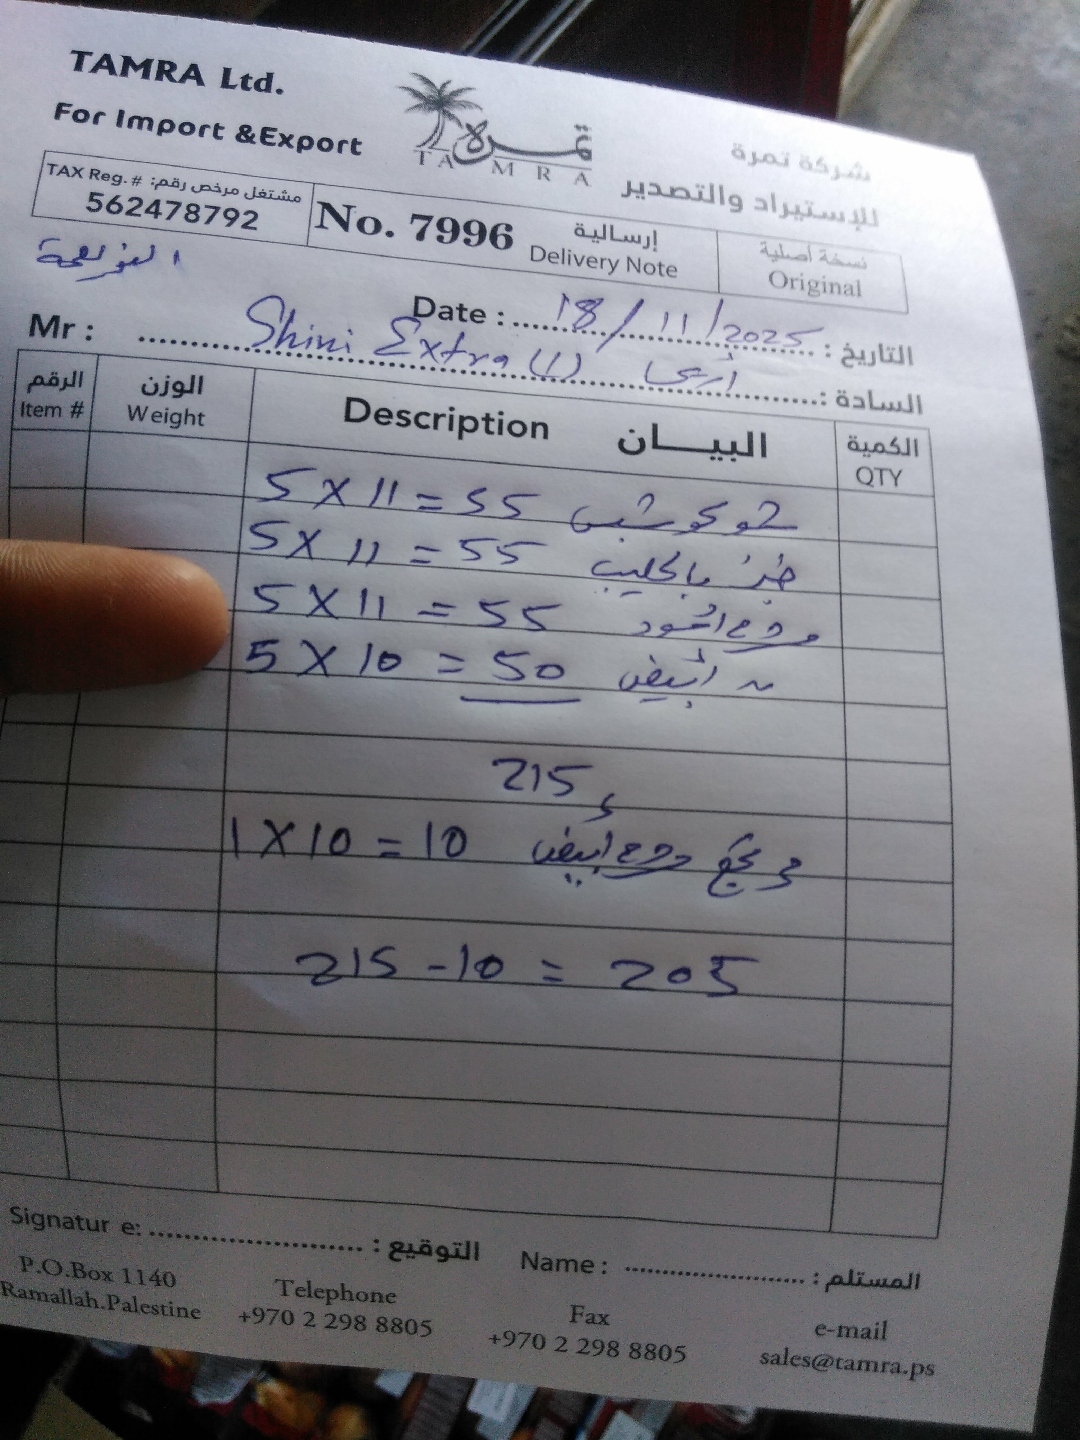 TAMRA Ltd.
For Import &Export
تمرة
TAMRA
شركة تمرة
للإستيراد والتصدير
TAX Reg. # مشتغل مرخص رقم:
562478792
No. 7996
إرسالية
Delivery Note
نسخة أصلية
Original
Date : 18/11/2025 التاريخ :
Mr : Shini Extra (1) السادة :
الرقم الوزن Description البيـــان الكمية
Item # Weight QTY
5 X 11 = 55
5 X 11 = 55 خبز بالحليب
5 X 11 = 55
5 X 10 = 50 ~ أبيض
215
1 X 10 = 10 مرتجع أبيض
215 - 10 = 205
Signatur e: التوقيع : Name : المستلم :
P.O.Box 1140
Ramallah.Palestine
Telephone
+970 2 298 8805
Fax
+970 2 298 8805
e-mail
sales@tamra.ps